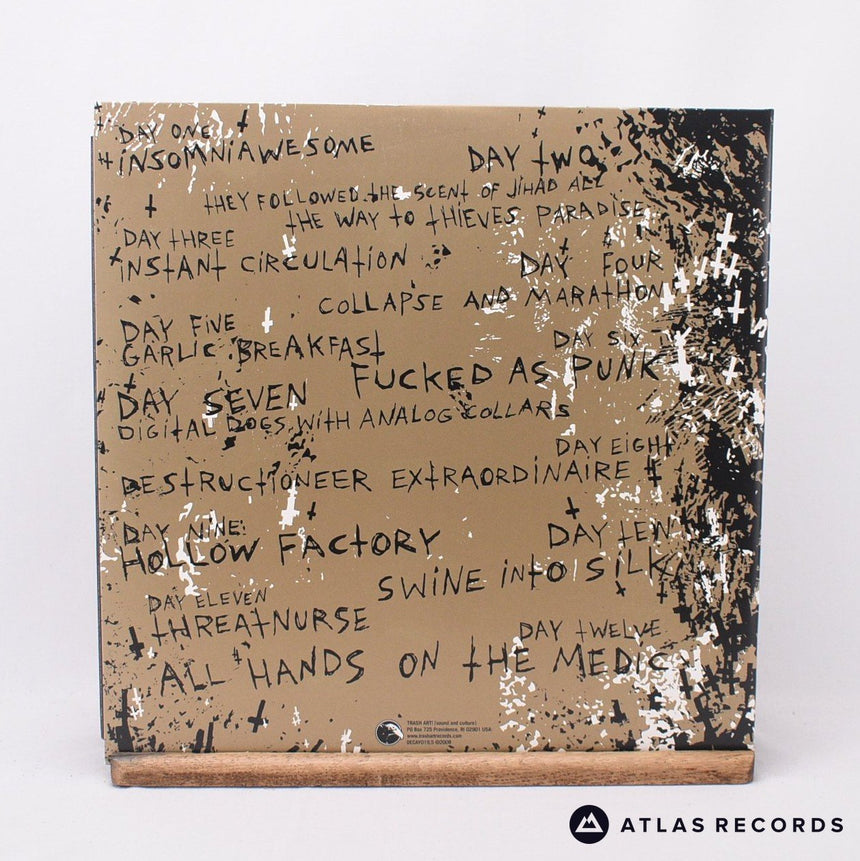 DAY ONE
INSOMNIAWESOME
DAY TWO
THEY FOLLOWED THE SCENT OF JIHAD ALL
THE WAY TO THIEVES PARADISE
DAY THREE
INSTANT CIRCULATION
DAY FOUR
COLLAPSE AND MARATHON
DAY FIVE
GARLIC BREAKFAST
DAY SIX
FUCKED AS PUNK
DAY SEVEN
DIGITAL DOGS WITH ANALOG COLLARS
DAY EIGHT
DESTRUCTIONEER EXTRAORDINAIRE
DAY NINE
HOLLOW FACTORY
DAY TEN
SWINE INTO SILK
DAY ELEVEN
THREATNURSE
DAY TWELVE
ALL HANDS ON THE MEDIC
TRASH ART! (sound and culture)
PO Box 725 Providence, RI 02901 USA
www.trashartrecords.com
ATLAS RECORDS